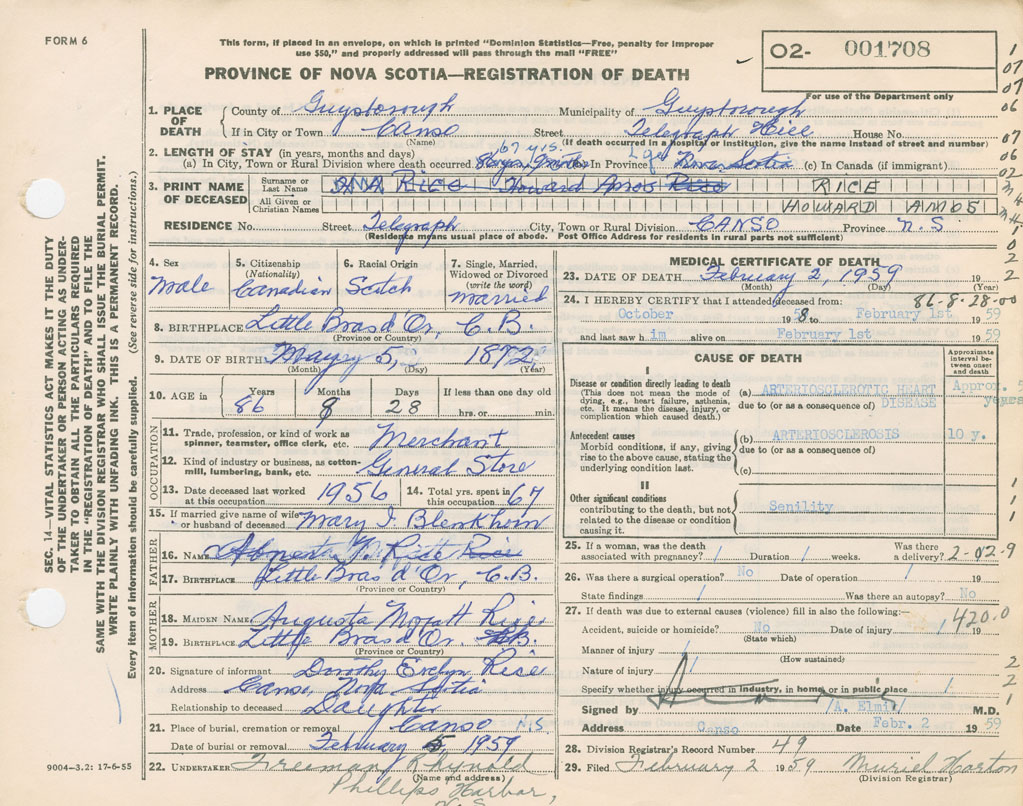 FORM 6
This form, if placed in an envelope, on which is printed "Dominion Statistics—Free, penalty for improper
use $50," and properly addressed will pass through the mail "FREE"
02- 001708
PROVINCE OF NOVA SCOTIA—REGISTRATION OF DEATH
For use of the Department only
1. PLACE OF DEATH { County of Guysborough Municipality of Guysborough
If in City or Town Canso Street Telegraph Hill House No.
(Name) (If death occurred in a hospital or institution, give the name instead of street and number)
2. LENGTH OF STAY (in years, months and days) 67 yrs.
(a) In City, Town or Rural Division where death occurred (b) In Province Nova Scotia (c) In Canada (if immigrant)
3. PRINT NAME OF DECEASED { Surname or Last Name RICE
All Given or Christian Names HOWARD AMOS
RESIDENCE No. Street Telegraph City, Town or Rural Division CANSO Province N.S
(Residence means usual place of abode. Post Office Address for residents in rural parts not sufficient)
4. Sex Male
5. Citizenship (Nationality) Canadian
6. Racial Origin Scotch
7. Single, Married, Widowed or Divorced (write the word) Married
8. BIRTHPLACE Little Bras d'Or, C.B.
(Province or Country)
9. DATE OF BIRTH May 5, 1872
(Month) (Day) (Year)
10. AGE in { Years 86 Months 8 Days 28 If less than one day old
hrs. or min.
OCCUPATION
11. Trade, profession, or kind of work as spinner, teamster, office clerk, etc. Merchant
12. Kind of industry or business, as cotton-mill, lumbering, bank, etc. General Store
13. Date deceased last worked at this occupation 1956
14. Total yrs. spent in this occupation 67
15. If married give name of wife or husband of deceased Mary I Blenkhorn
FATHER
16. NAME Rice
17. BIRTHPLACE Little Bras d'Or, C.B.
(Province or Country)
MOTHER
18. MAIDEN NAME Augusta Moffatt Rice
19. BIRTHPLACE Little Bras d'Or. C.B.
(Province or Country)
20. Signature of informant Dorothy Evelyn Rice
Address Canso, Nova Scotia
Relationship to deceased Daughter
21. Place of burial, cremation or removal Canso N.S.
Date of burial or removal February 5 1959
22. UNDERTAKER Freeman Rhynold
(Name and address)
Phillips Harbor,
N.S.
MEDICAL CERTIFICATE OF DEATH
23. DATE OF DEATH February 2, 1959
(Month) (Day) (Year)
86-8-28-00
24. I HEREBY CERTIFY that I attended deceased from:
October 1958 to February 1st 1959
and last saw him alive on February 1st 1959
CAUSE OF DEATH
Approximate interval between onset and death
I
Disease or condition directly leading to death
(This does not mean the mode of dying, e.g., heart failure, asthenia, etc. It means the disease, injury, or complication which caused death.)
(a) ARTERIOSCLEROTIC HEART DISEASE Approx. 5 years
due to (or as a consequence of)
Antecedent causes
Morbid conditions, if any, giving rise to the above cause, stating the underlying condition last.
(b) ARTERIOSCLEROSIS 10 y.
due to (or as a consequence of)
(c)
II
Other significant conditions
contributing to the death, but not related to the disease or condition causing it.
Senility
25. If a woman, was the death associated with pregnancy? / Duration / weeks. Was there a delivery? 2-02-9
26. Was there a surgical operation? No Date of operation / 19
State findings / Was there an autopsy? No
27. If death was due to external causes (violence) fill in also the following:—
420.0
Accident, suicide or homicide? No Date of injury / 19
(State which)
Manner of injury /
(How sustained)
Nature of injury /
Specify whether injury occurred in industry, in home, or in public place /
Signed by /A. Elmik/ M.D.
Address Canso Date Febr. 2 1959
28. Division Registrar's Record Number 49
29. Filed February 2 1959 Muriel Horton
(Division Registrar)
SEC. 14—VITAL STATISTICS ACT MAKES IT THE DUTY
OF THE UNDERTAKER OR PERSON ACTING AS UNDER-
TAKER TO OBTAIN ALL THE PARTICULARS REQUIRED
IN THE "REGISTRATION OF DEATH" AND TO FILE THE
SAME WITH THE DIVISION REGISTRAR WHO SHALL ISSUE THE BURIAL PERMIT.
WRITE PLAINLY WITH UNFADING INK. THIS IS A PERMANENT RECORD.
Every item of information should be carefully supplied. (See reverse side for instructions.)
9004—3.2: 17-6-55
1
07
07
06
07
06
02
0
2
2
1
1
1
2
2
1